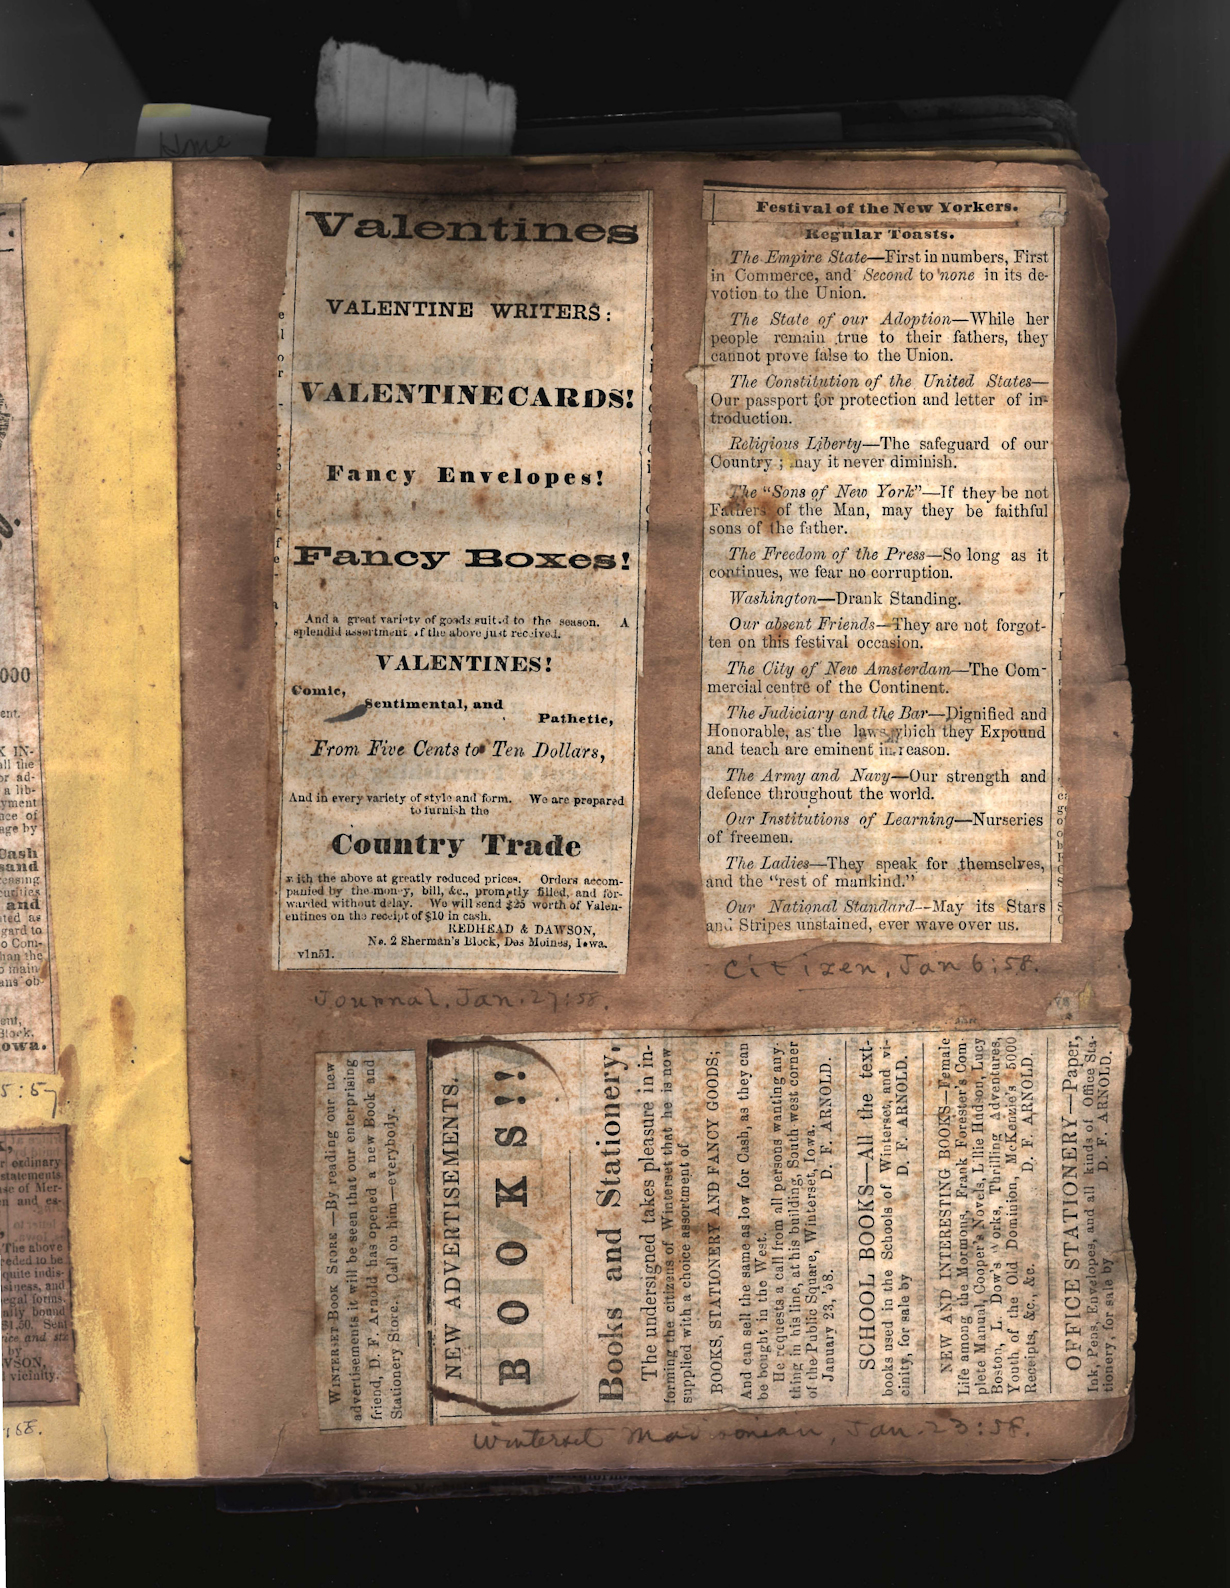 Home
Valentines
VALENTINE WRITERS:
VALENTINE CARDS!
Fancy Envelopes!
Fancy Boxes!
And a great variety of goods suited to the season. A
splendid assortment of the above just received.
VALENTINES!
Comic,
Sentimental, and
Pathetic,
From Five Cents to Ten Dollars,
And in every variety of style and form. We are prepared
to furnish the
Country Trade
with the above at greatly reduced prices. Orders accom-
panied by the money, bill, &c., promptly filled, and for-
warded without delay. We will send $25 worth of Valen-
entines on the receipt of $10 in cash.
REDHEAD & DAWSON,
No. 2 Sherman's Block, Des Moines, Iowa.
v1n51.
Journal, Jan. 27:58.
Festival of the New Yorkers.
Regular Toasts.
The Empire State—First in numbers, First
in Commerce, and Second to none in its de-
votion to the Union.
The State of our Adoption—While her
people remain true to their fathers, they
cannot prove false to the Union.
The Constitution of the United States—
Our passport for protection and letter of in-
troduction.
Religious Liberty—The safeguard of our
Country; may it never diminish.
The "Sons of New York"—If they be not
Fathers of the Man, may they be faithful
sons of the father.
The Freedom of the Press—So long as it
continues, we fear no corruption.
Washington—Drank Standing.
Our absent Friends—They are not forgot-
ten on this festival occasion.
The City of New Amsterdam—The Com-
mercial centre of the Continent.
The Judiciary and the Bar—Dignified and
Honorable, as the laws which they Expound
and teach are eminent in reason.
The Army and Navy—Our strength and
defence throughout the world.
Our Institutions of Learning—Nurseries
of freemen.
The Ladies—They speak for themselves,
and the "rest of mankind."
Our National Standard—May its Stars
and Stripes unstained, ever wave over us.
Citizen, Jan 6:58.
WINTERSET BOOK STORE—By reading our new
advertisements it will be seen that our enterprising
friend, D. F. Arnold has opened a new Book and
Stationery Store. Call on him—everybody.
NEW ADVERTISEMENTS.
BOOKS!!
Books and Stationery,
The undersigned takes pleasure in in-
forming the citizens of Winterset that he is now
supplied with a choice assortment of
BOOKS, STATIONERY AND FANCY GOODS;
And can sell the same as low for Cash, as they can
be bought in the West.
He requests a call from all persons wanting any-
thing in his line, at his building, South west corner
of the Public Square, Winterset, Iowa.
January 23, '58. D. F. ARNOLD.
SCHOOL BOOKS—All the text-
books used in the Schools of Winterset, and vi-
cinity, for sale by D. F. ARNOLD.
NEW AND INTERESTING BOOKS—Female
Life among the Mormons, Frank Forester's Com-
plete Manual, Cooper's Novels, Lillie Hudson, Lucy
Boston, L. Dow's Works, Thrilling Adventures,
Youth of the Old Dominion, McKenzie's 5000
Receipts, &c., &c. D. F. ARNOLD.
OFFICE STATIONERY—Paper,
Ink, Pens, Envelopes, and all kinds of Office Sta-
tionery, for sale by D. F. ARNOLD.
Winterset Madisonian, Jan. 23:58.